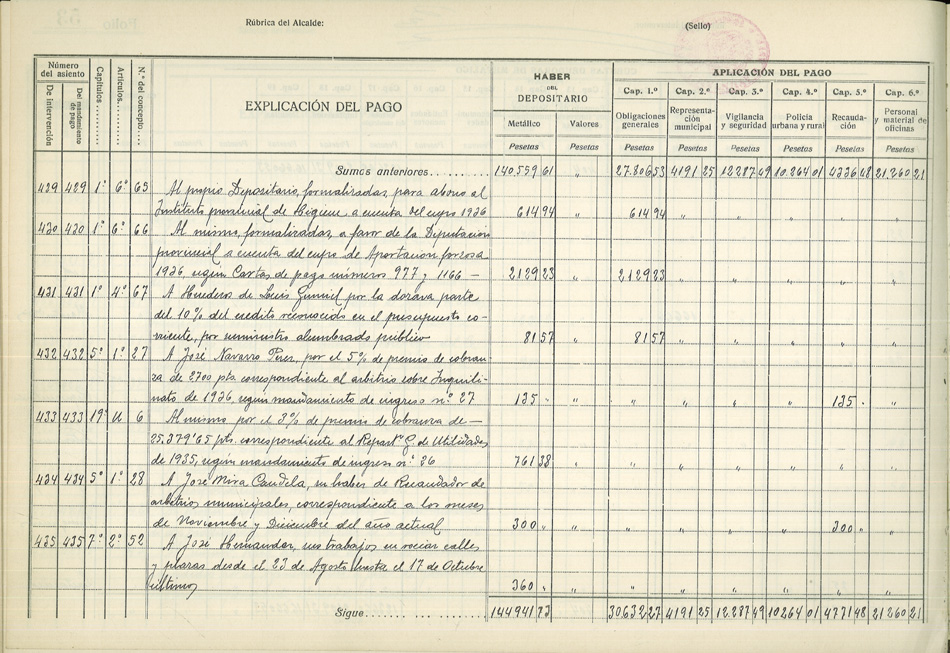 Rúbrica del Alcalde:
(Sello)
Número del asiento
De intervención
Del mandamiento de pago
Capítulos
Artículos
N.º del concepto
EXPLICACIÓN DEL PAGO
HABER
DEL
DEPOSITARIO
Metálico
Valores
Pesetas
Pesetas
APLICACIÓN DEL PAGO
Cap. 1.º Cap. 2.º Cap. 3.º Cap. 4.º Cap. 5.º Cap. 6.º
Obligaciones generales
Representación municipal
Vigilancia y seguridad
Policía urbana y rural
Recaudación
Personal y material de oficinas
Pesetas Pesetas Pesetas Pesetas Pesetas Pesetas
Sumas anteriores 140.559 61 " 27.806 53 4191 25 12.287 49 10.264 01 4336 48 21.260 21
429 429 1º 6º 65 Al propio Depositario, formalizadas, para abono al
Instituto provincial de Higiene a cuenta del cupo 1936 614 94 " 614 94 " " " " "
430 430 1º 6º 66 Al mismo, formalizadas, a favor de la Deputación
provincial a cuenta del cupo de Aportación forzosa
1936, según Cartas de pago números 977 y 1166 — 2129 23 " 2129 23 " " " " "
431 431 1º 4º 67 A Herederos de Luis por la dozava parte
del 10% del credito reconocido en el presupuesto co-
rriente, por suministro alumbrado público 81 57 " 81 57 " " " " "
432 432 5º 1º 27 A José Navarro Pérez, por el 5% de premio de cobran-
za de 2700 pts. correspondiente al arbitrio sobre Inquili-
nato de 1936, según mandamiento de ingreso nº 27 135 " " " " " " 135 " "
433 433 19º U 6 Al mismo por el 3% de premio de cobranza de—
25.379'65 pts. correspondiente al Repartº G. de Utilidades
de 1935, según mandamiento de ingreso nº 36 761 38 " " " " " " "
434 434 5º 1º 28 A José Mira Candela, su haber de Recaudador de
arbitrios municipales, correspondiente a los meses
de Noviembre y Diciembre del año actual 300 " " " " " " 300 " "
435 435 7º 2º 52 A José Hernandez, sus trabajos en rociar calles
y plazas desde el 23 de Agosto hasta el 17 de Octubre
último 360 " " " " " " " "
Sigue 144941 73 30.632 27 4191 25 12.287 49 10264 01 4771 48 21260 21